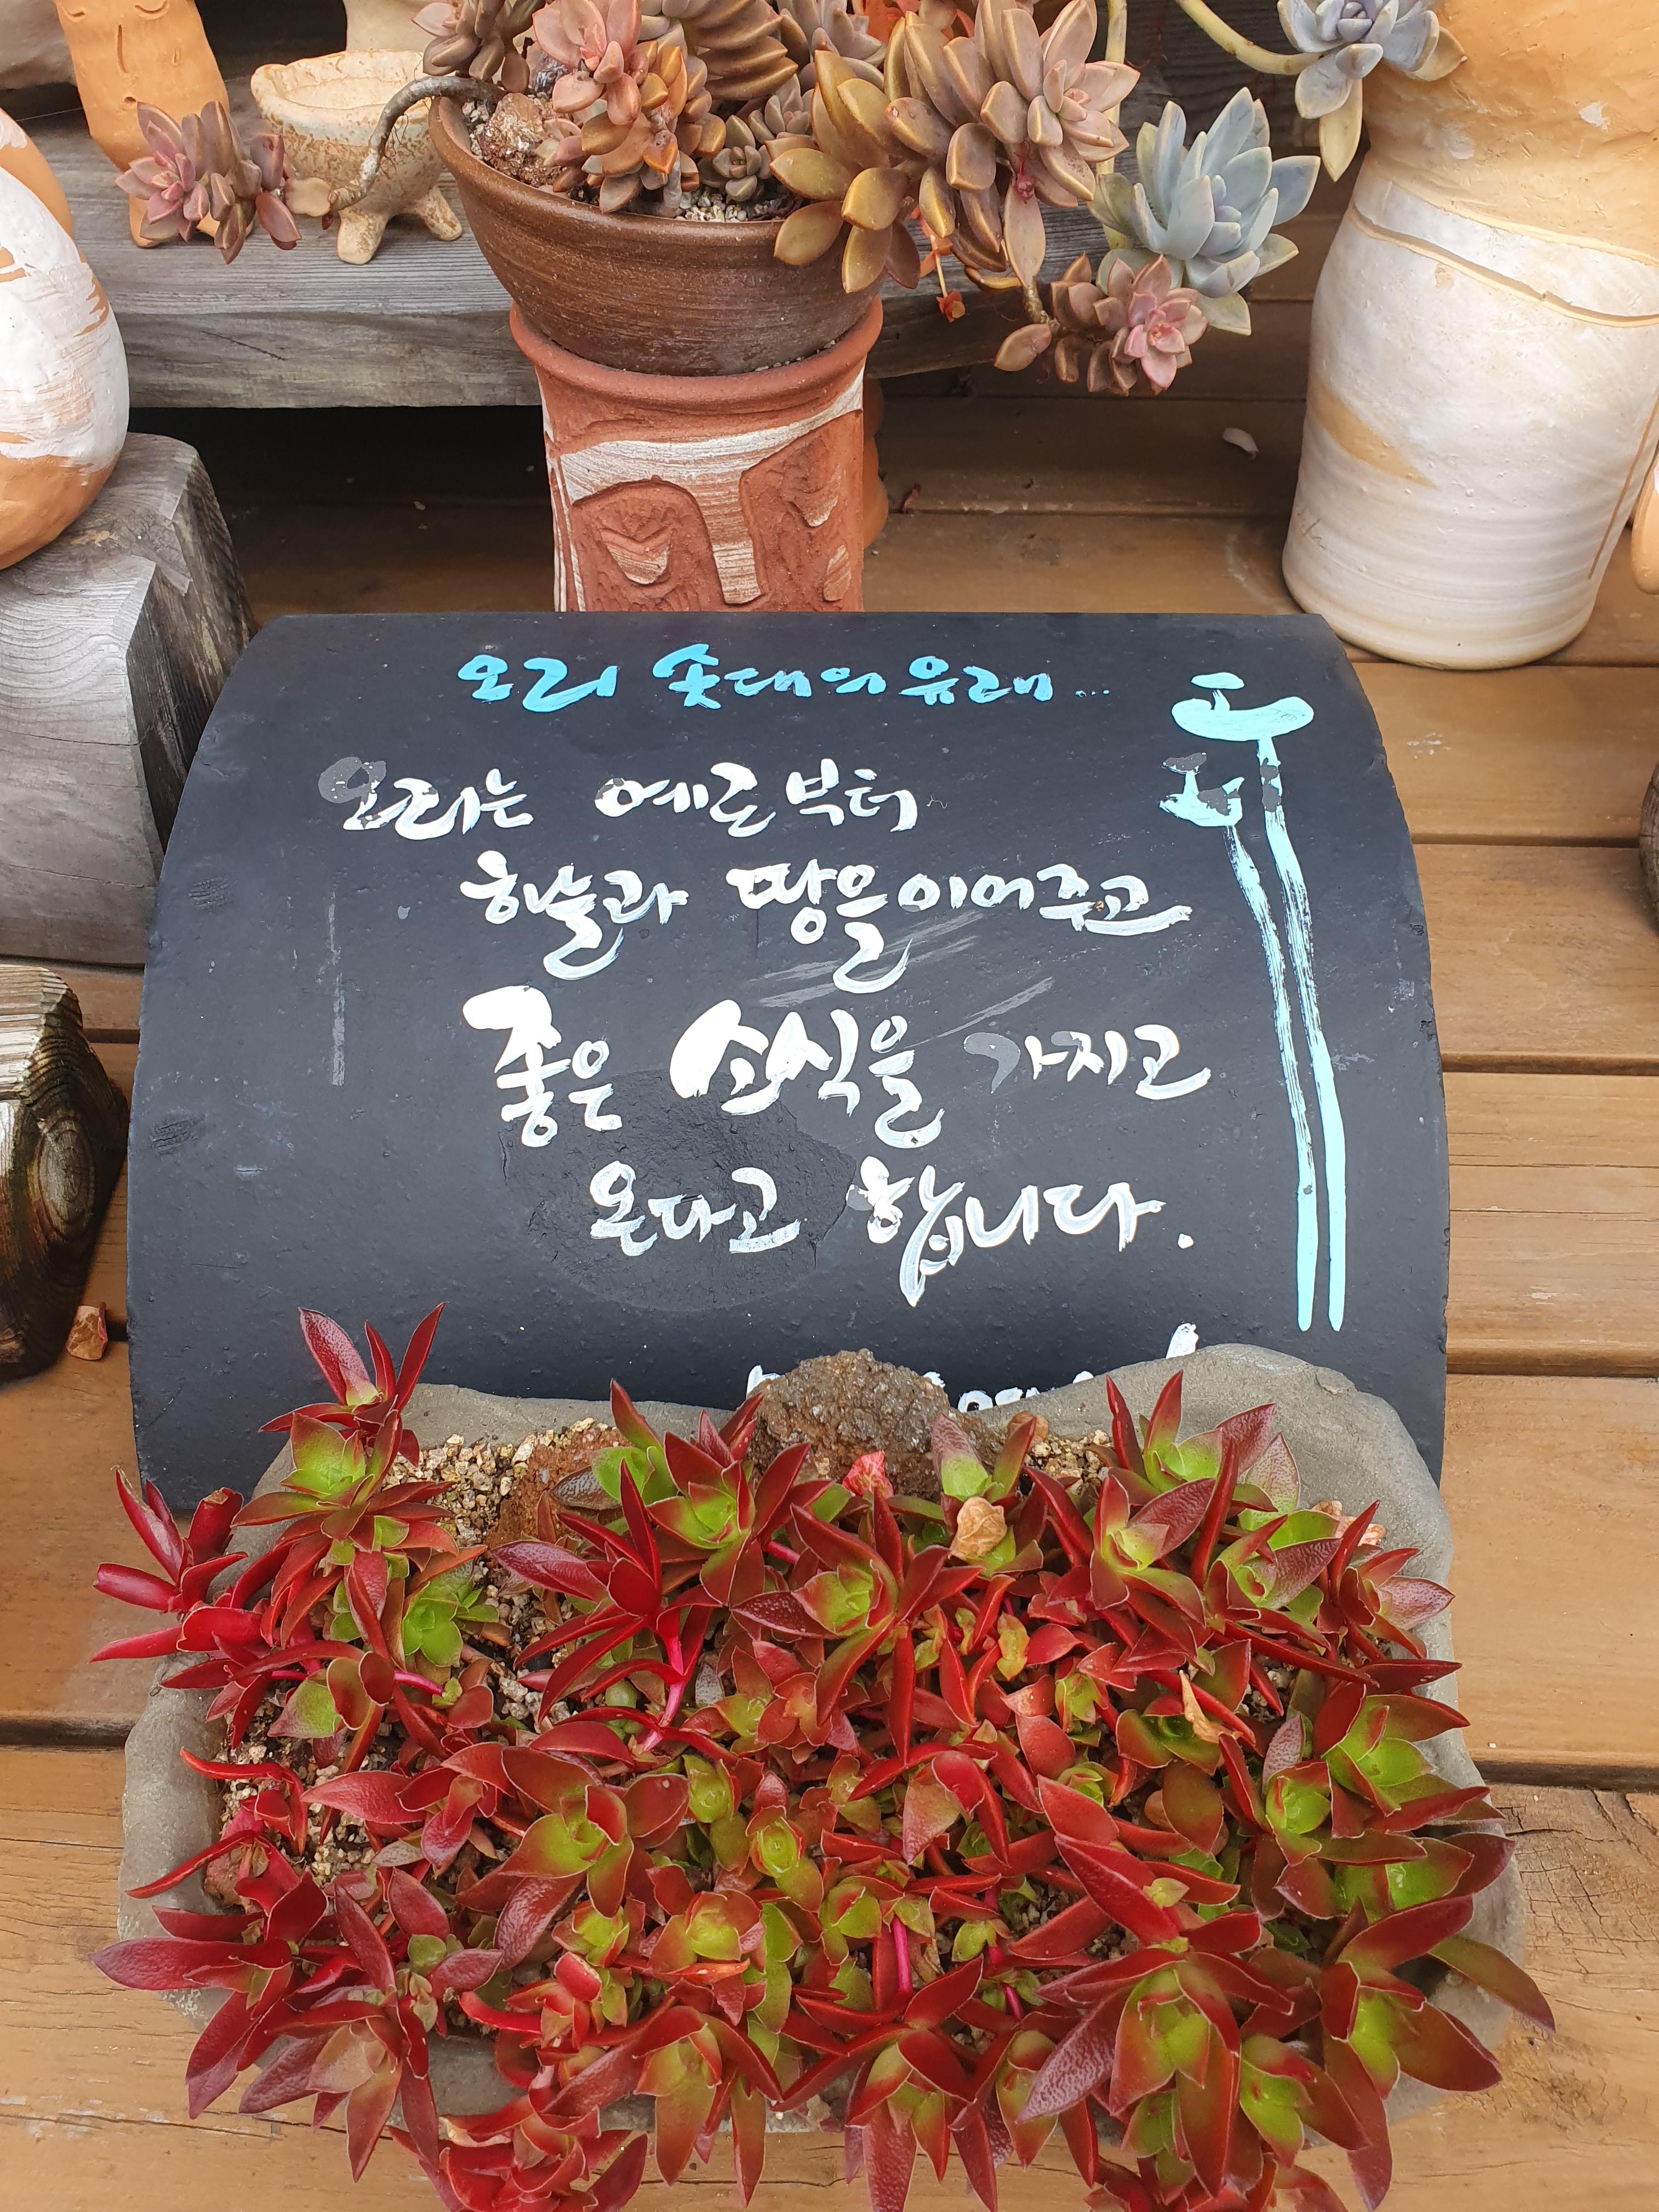 오리 솟대의 유래...
오리는 예로부터
하늘과 땅을 이어주고
좋은 소식을 가지고
온다고 합니다.